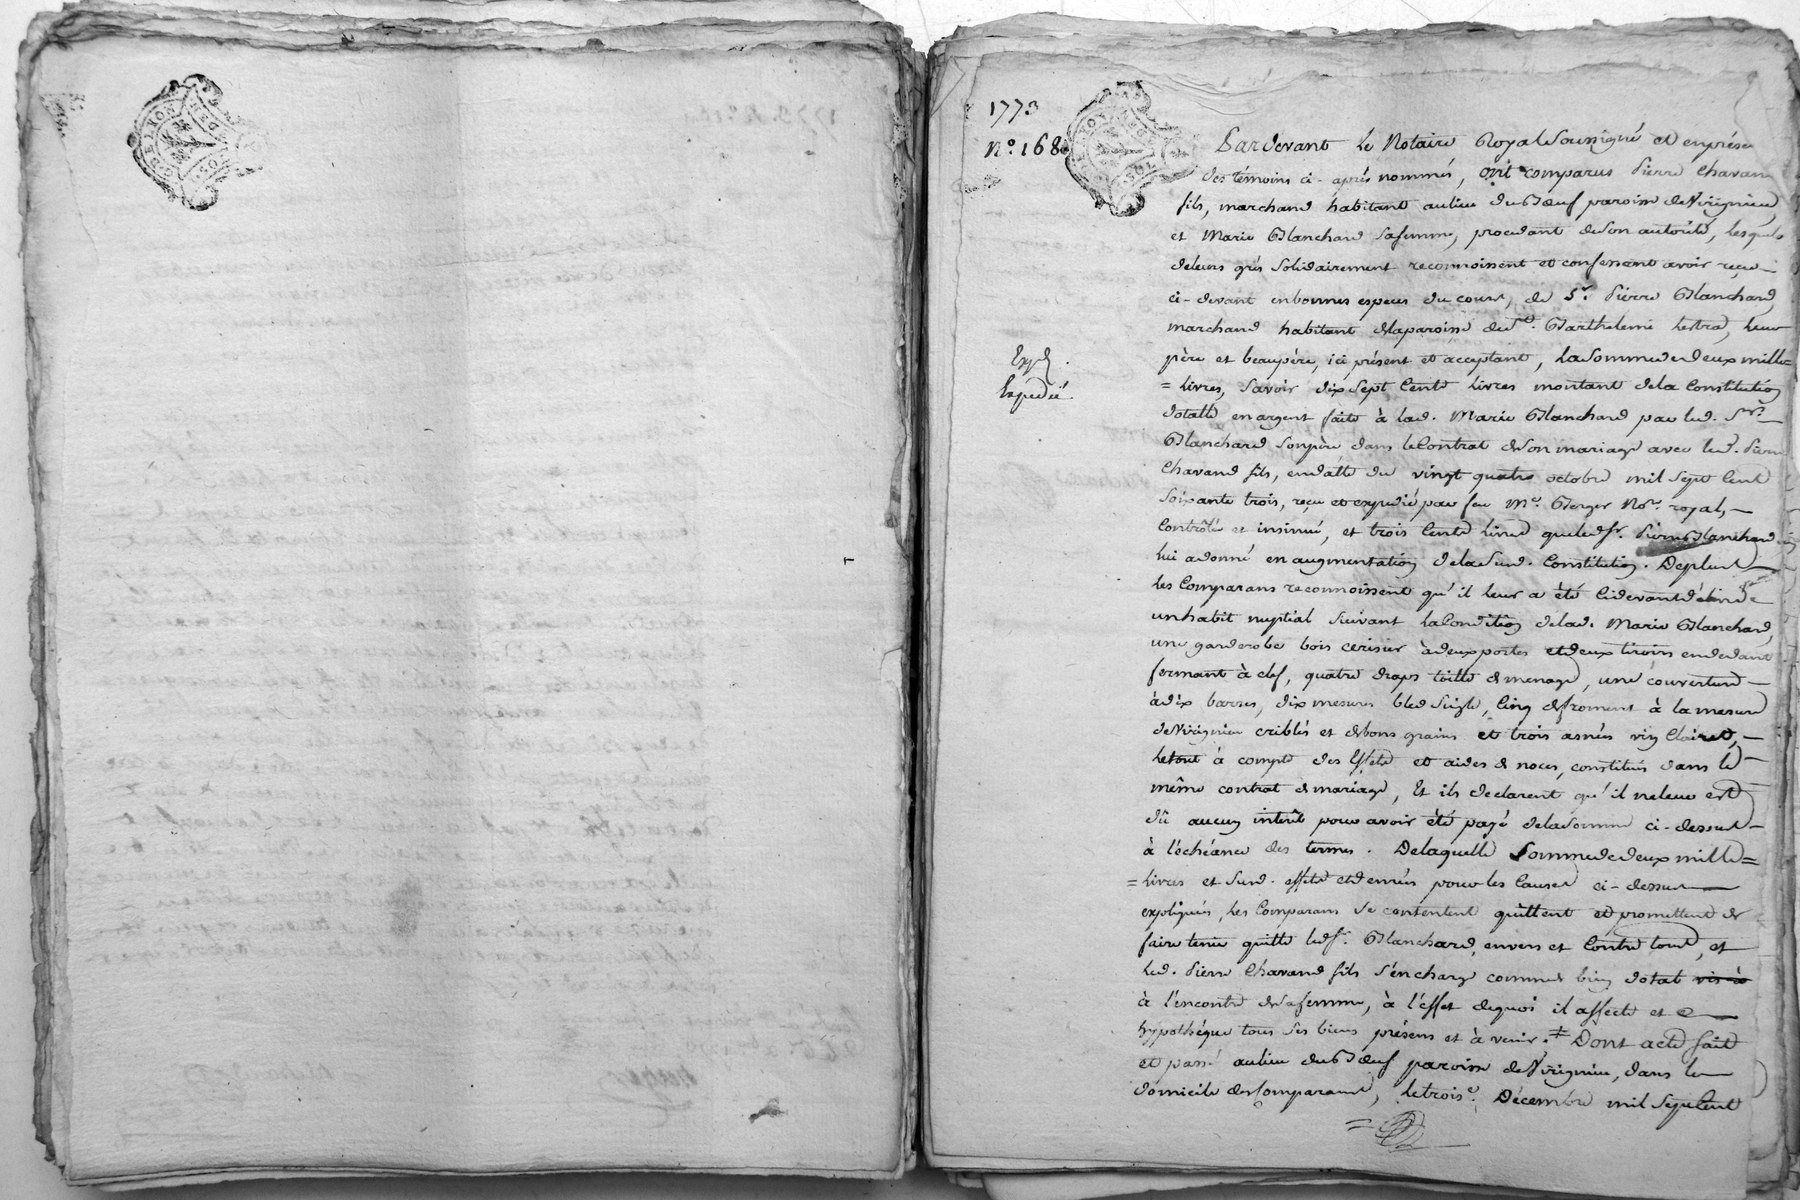 1773
N°. 168
Expd.
Expedié.
Pardevant le Notaire Royal Soussigné et enprésen
des témoins ci-après nommés, ont comparus Pierre Chavan
fils, marchand habitant aulieu du Bœuf paroisse deVirignieu
et Marie Blanchard safemme, procedant deson autorité, lesquels
deleurs grés solidairement reconnoissent et confessent avoir reçu
ci-devant enbonnes especes du cours, de Sr. Pierre Blanchard,
marchand habitant delaparoisse de St. Barthelemi lestra, leur
père et beaupère, ici présent et acceptant, lasommededeux mille=
=livres, Savoir dix Sept Cents livres montant dela Constitution
dotalle enargent faite à lad. Marie Blanchard par led. Sr.
Blanchard sonpère dans leContrat deson mariage avec led. Pierre
Chavand fils, endatte du vingt quatre octobre mil sept Cent
soixante trois, reçu et expedié par feu Me. Berger Nore. royal,
Contrôlé et insinué, et trois Cents livres queledSr. Pierre Blanchard
lui adonné en augmentation delaSusd. Constitution. Deplus
les Comparans reconnoissent qu'il leur a été Cidevant délivré
unhabit nuptial suivant laCondition delad. Marie Blanchard,
une garderobe bois cerisier àdeuxportes etdeux tiroirs endedans
fermant à clef, quatre draps toille de menage, une couverture
àdix barres, dix mesures bled Seigle, Cinq defroment à la mesure
deVirignieu criblés et debons grains et trois asnées vin Clairet,
letout à compte des Effets et aides de noces, constitués dans le
même contrat de mariage, Et ils declarent qu'il neleur est
dû aucun intérêt pour avoir été payé delasomme ci-dessus
à l'echéance des termes. Delaquelle Sommededeux mille=
=livres et Susd. effets etdenrées pour les Causes ci-dessus
expliquées, les Comparans se contentent quittent et promettent de
faire tenir quitte ledSr. Blanchard, envers et Contre tous, et
led. Pierre Chavand fils s'encharge comme de bien dotal vis à
à l'encontre desafemme, à l'effet dequoi il affecte et
hypothéque tous ses biens présens et à venir. Dont acte fait
et passé aulieu duBœuf paroisse deVirignieu, dans le
domicile desComparans, letroise. Décembre mil septCent